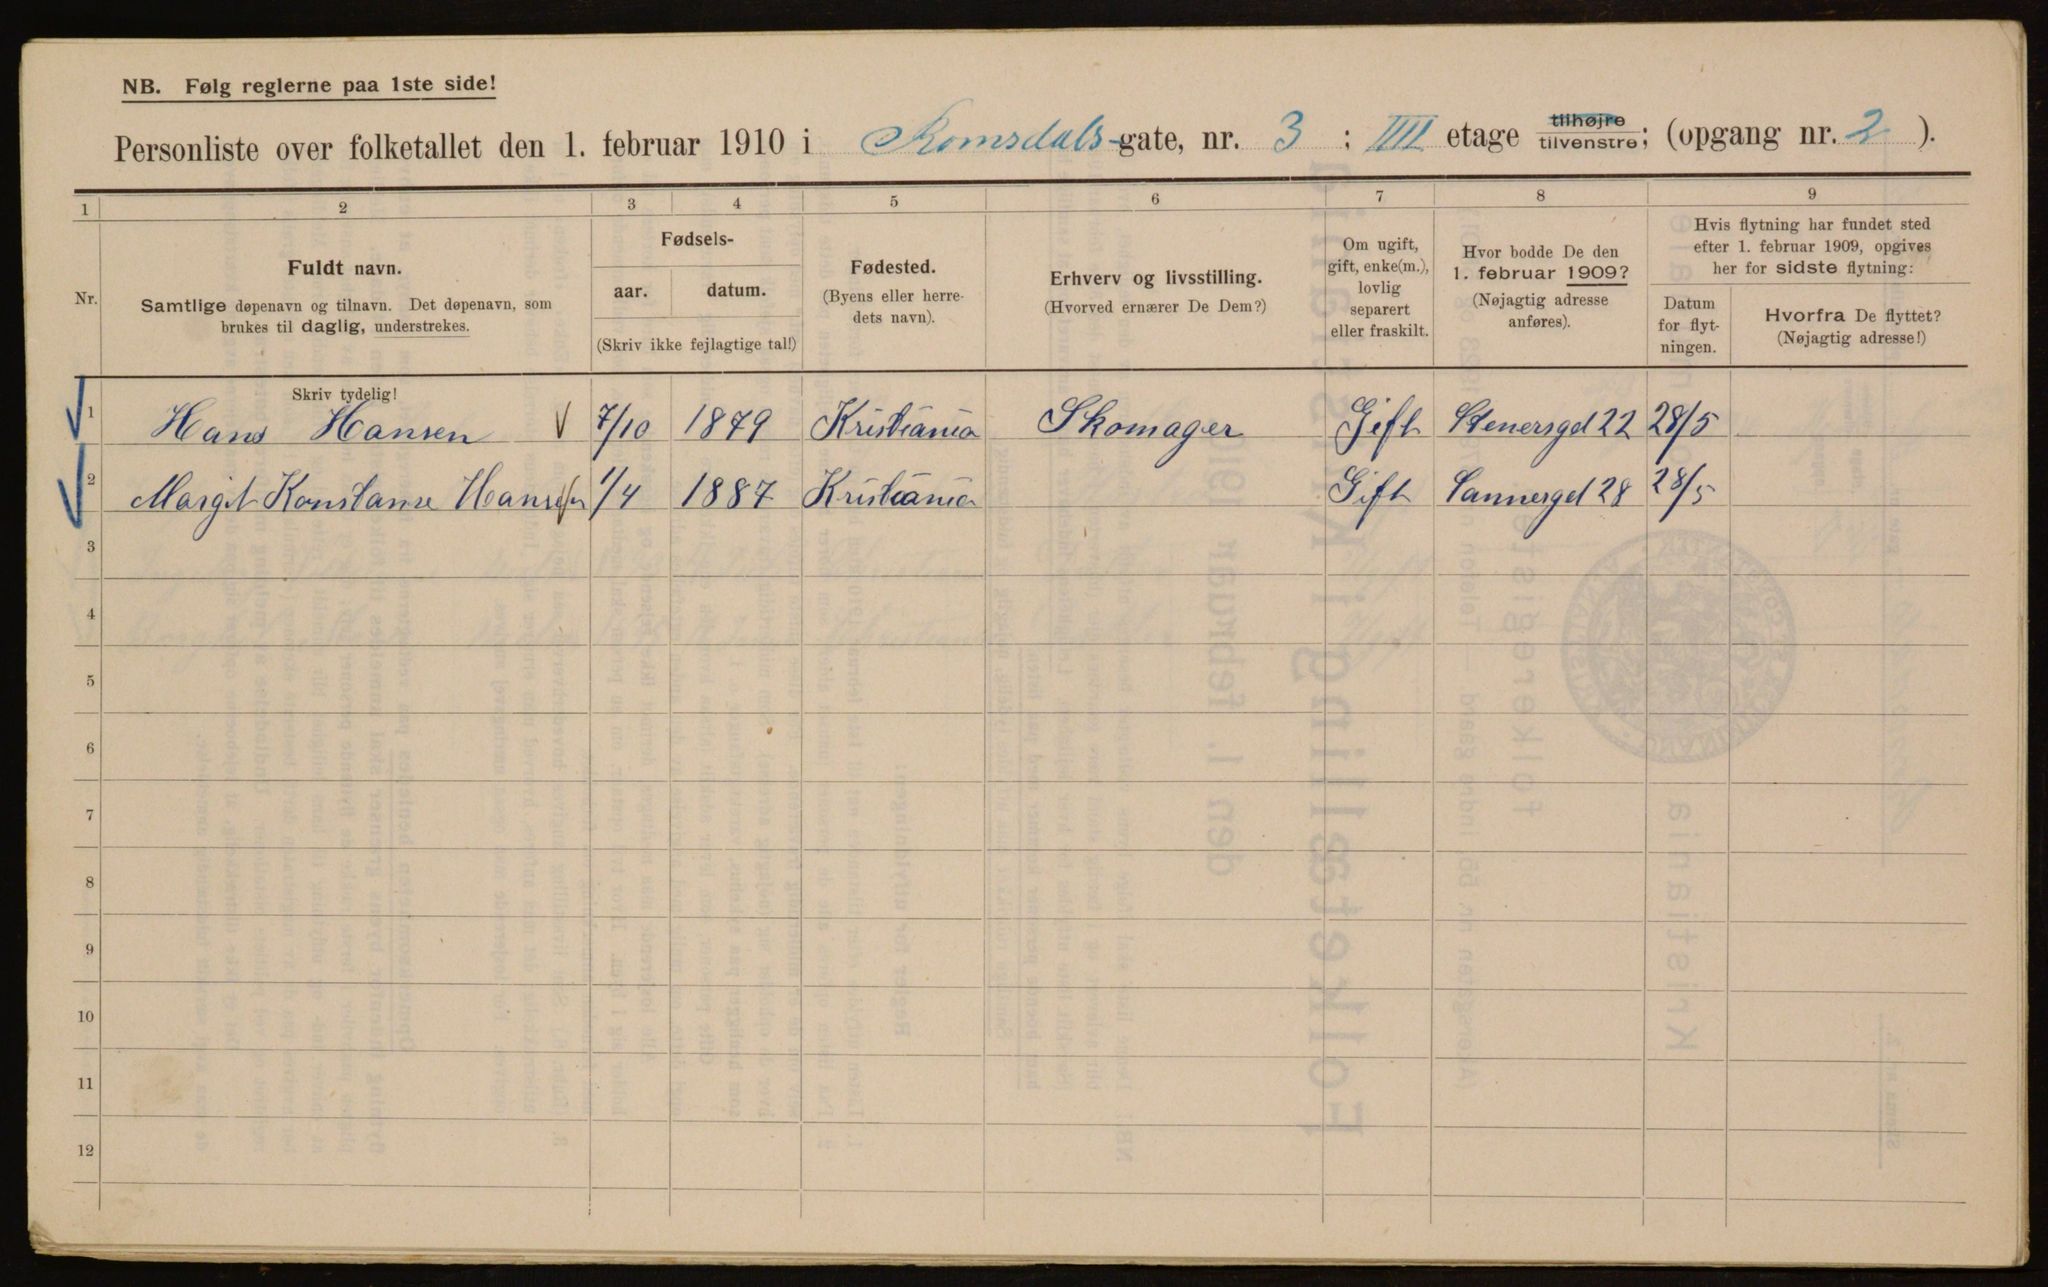 NB. Følg reglerne paa 1ste side!
Personliste over folketallet den 1. februar 1910 i Romsdals-gate, nr. 3 ; IIII etage tilhøjre tilvenstre; (opgang nr. 2 ).
1 2 3 4 5 6 7 8 9
Nr.
Fuldt navn.
Samtlige døpenavn og tilnavn. Det døpenavn, som
brukes til daglig, understrekes.
Fødsels-
aar. datum.
(Skriv ikke fejlagtige tal!)
Fødested.
(Byens eller herre-
dets navn).
Erhverv og livsstilling.
(Hvorved ernærer De Dem?)
Om ugift,
gift, enke(m.),
lovlig
separert
eller fraskilt.
Hvor bodde De den
1. februar 1909?
(Nøjagtig adresse
anføres).
Hvis flytning har fundet sted
efter 1. februar 1909, opgives
her for sidste flytning:
Datum
for flyt-
ningen.
Hvorfra De flyttet?
(Nøjagtig adresse!)
Skriv tydelig!
1 Hans Hansen 7/10 1879 Kristiania Skomager Gift Stenersgd 22 28/5
2 Margit Konstanse Hansen 1/4 1887 Kristiania Gift Sannergd 28 28/5
3
4
5
6
7
8
9
10
11
12